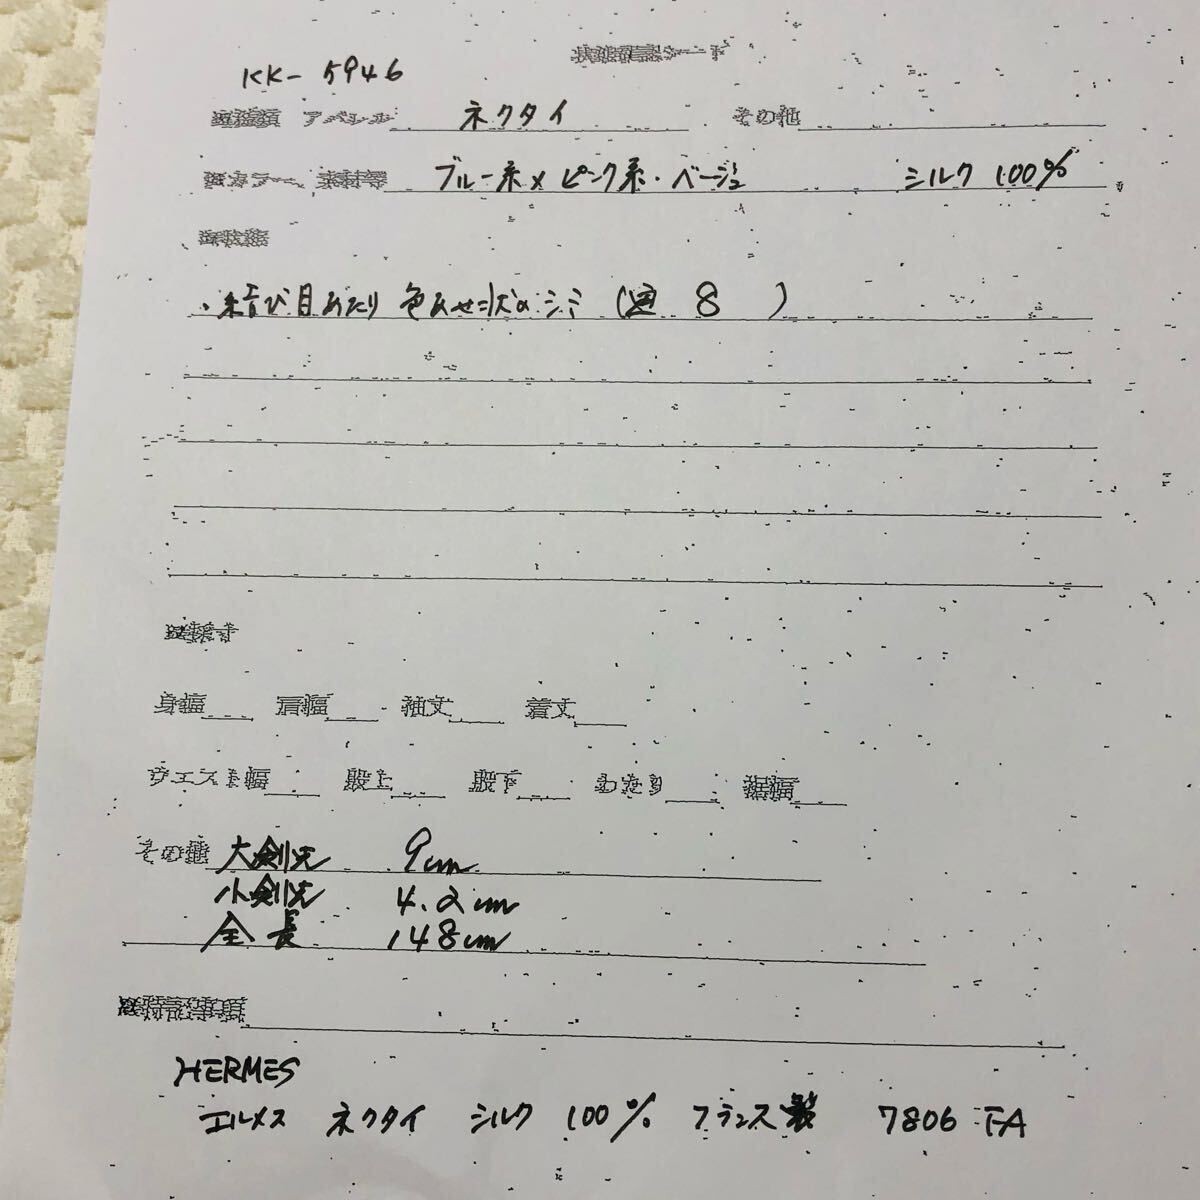 状態確認シート
KK-5946
アパレル ネクタイ その他
カラー、素材等 ブルー系×ピンク系・ベージュ シルク 100%
・結び目あたり 色あせ状のシミ ( 8 )
身幅 肩幅 袖丈 着丈
ウエスト幅 股上 股下 わたり 裾幅
その他 大剣先 9cm
小剣先 4.2cm
全長 148cm
特記事項
HERMES
エルメス ネクタイ シルク 100% フランス製 7806 TA